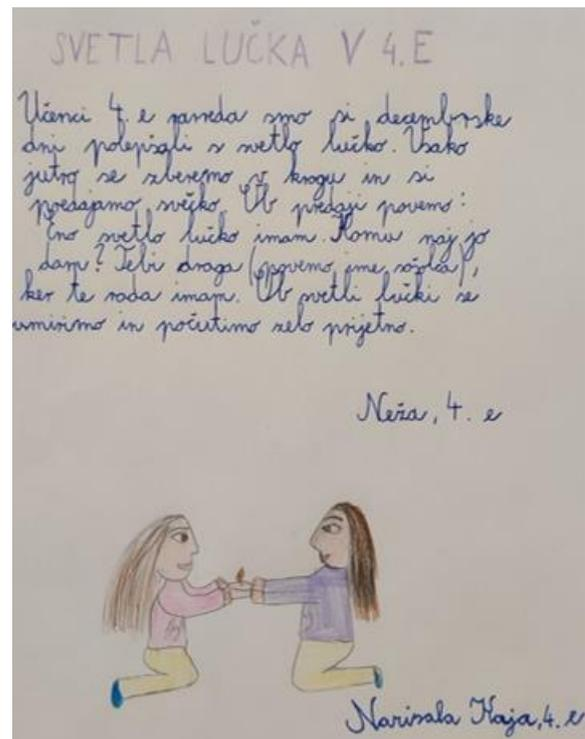 SVETLA LUČKA V 4. E
Učenci 4. e razreda smo si decembrske
dni polepšali s svetlo lučko. Vsako
jutro se zberemo v krogu in si
podajamo svečko. Ob predaji povemo:
Eno svetlo lučko imam. Komu naj jo
dam? Tebi draga (povemo ime sošolca),
ker te rada imam. Ob svetli lučki se
umirimo in počutimo zelo prijetno.
Neža, 4. e
Narisala Kaja, 4. e